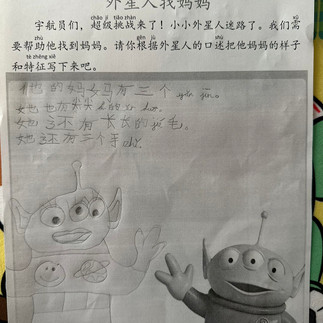 外星人找妈妈
宇航员们，超级挑战来了！小小外星人迷路了。我们需
要帮助他找到妈妈。请你根据外星人的口述把他妈妈的样子
和特征写下来吧。
他的妈妈有三个yǎn jīng。
她也有尖尖的ěr duo。
她还有长长的jié毛。
她还有三个手chǐ。